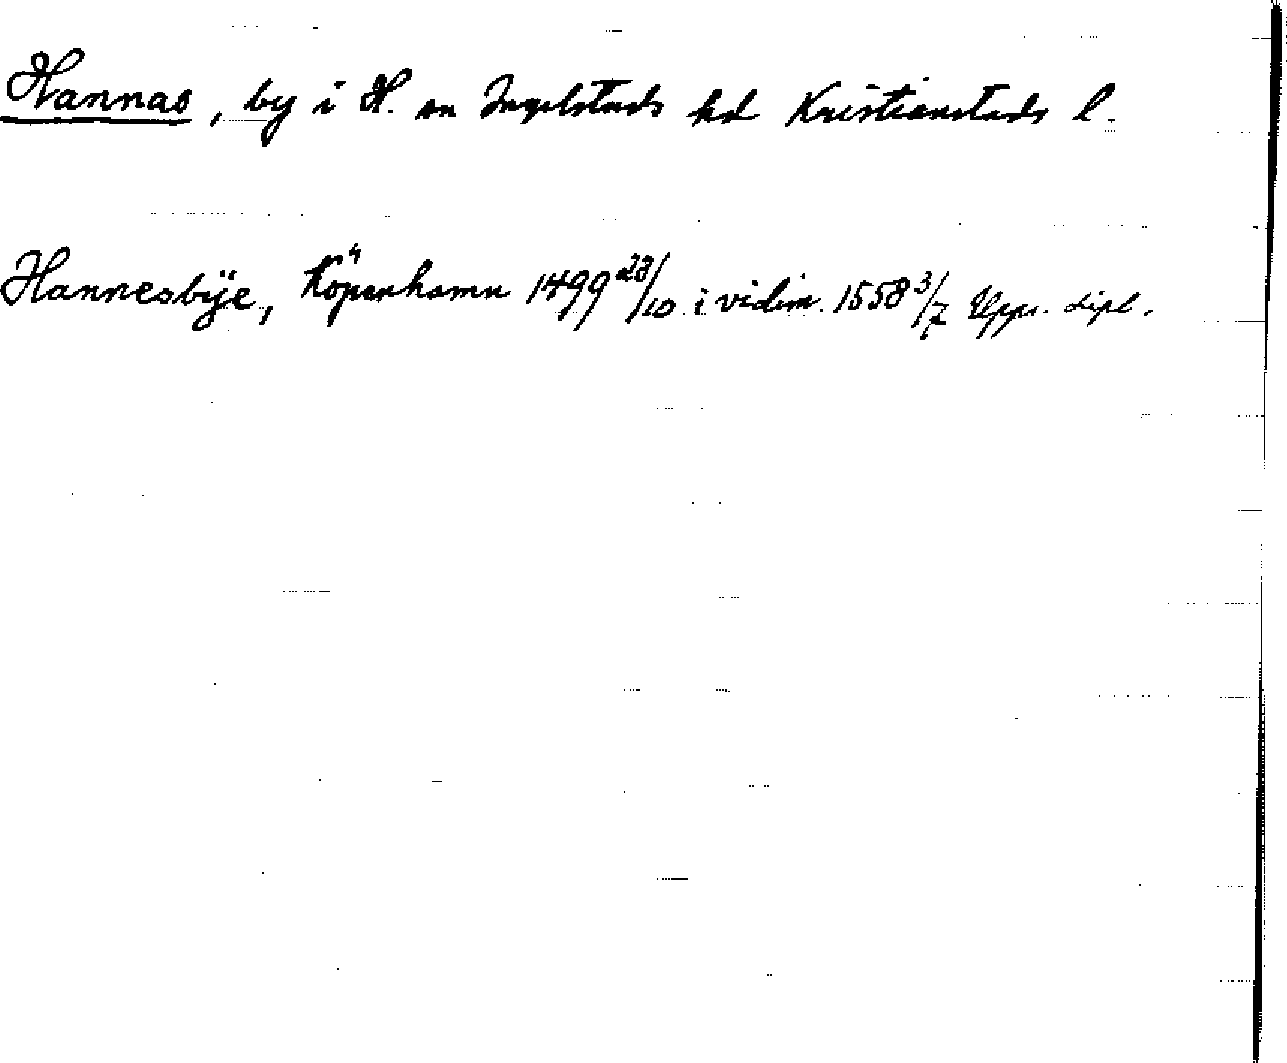 Hannas, by i H. sn Ingelstads hd Kristianstads l.
Hannesbÿe, Köpenhamn 1499 28/10 i vidim. 1558 3/7 Upps. dipl.